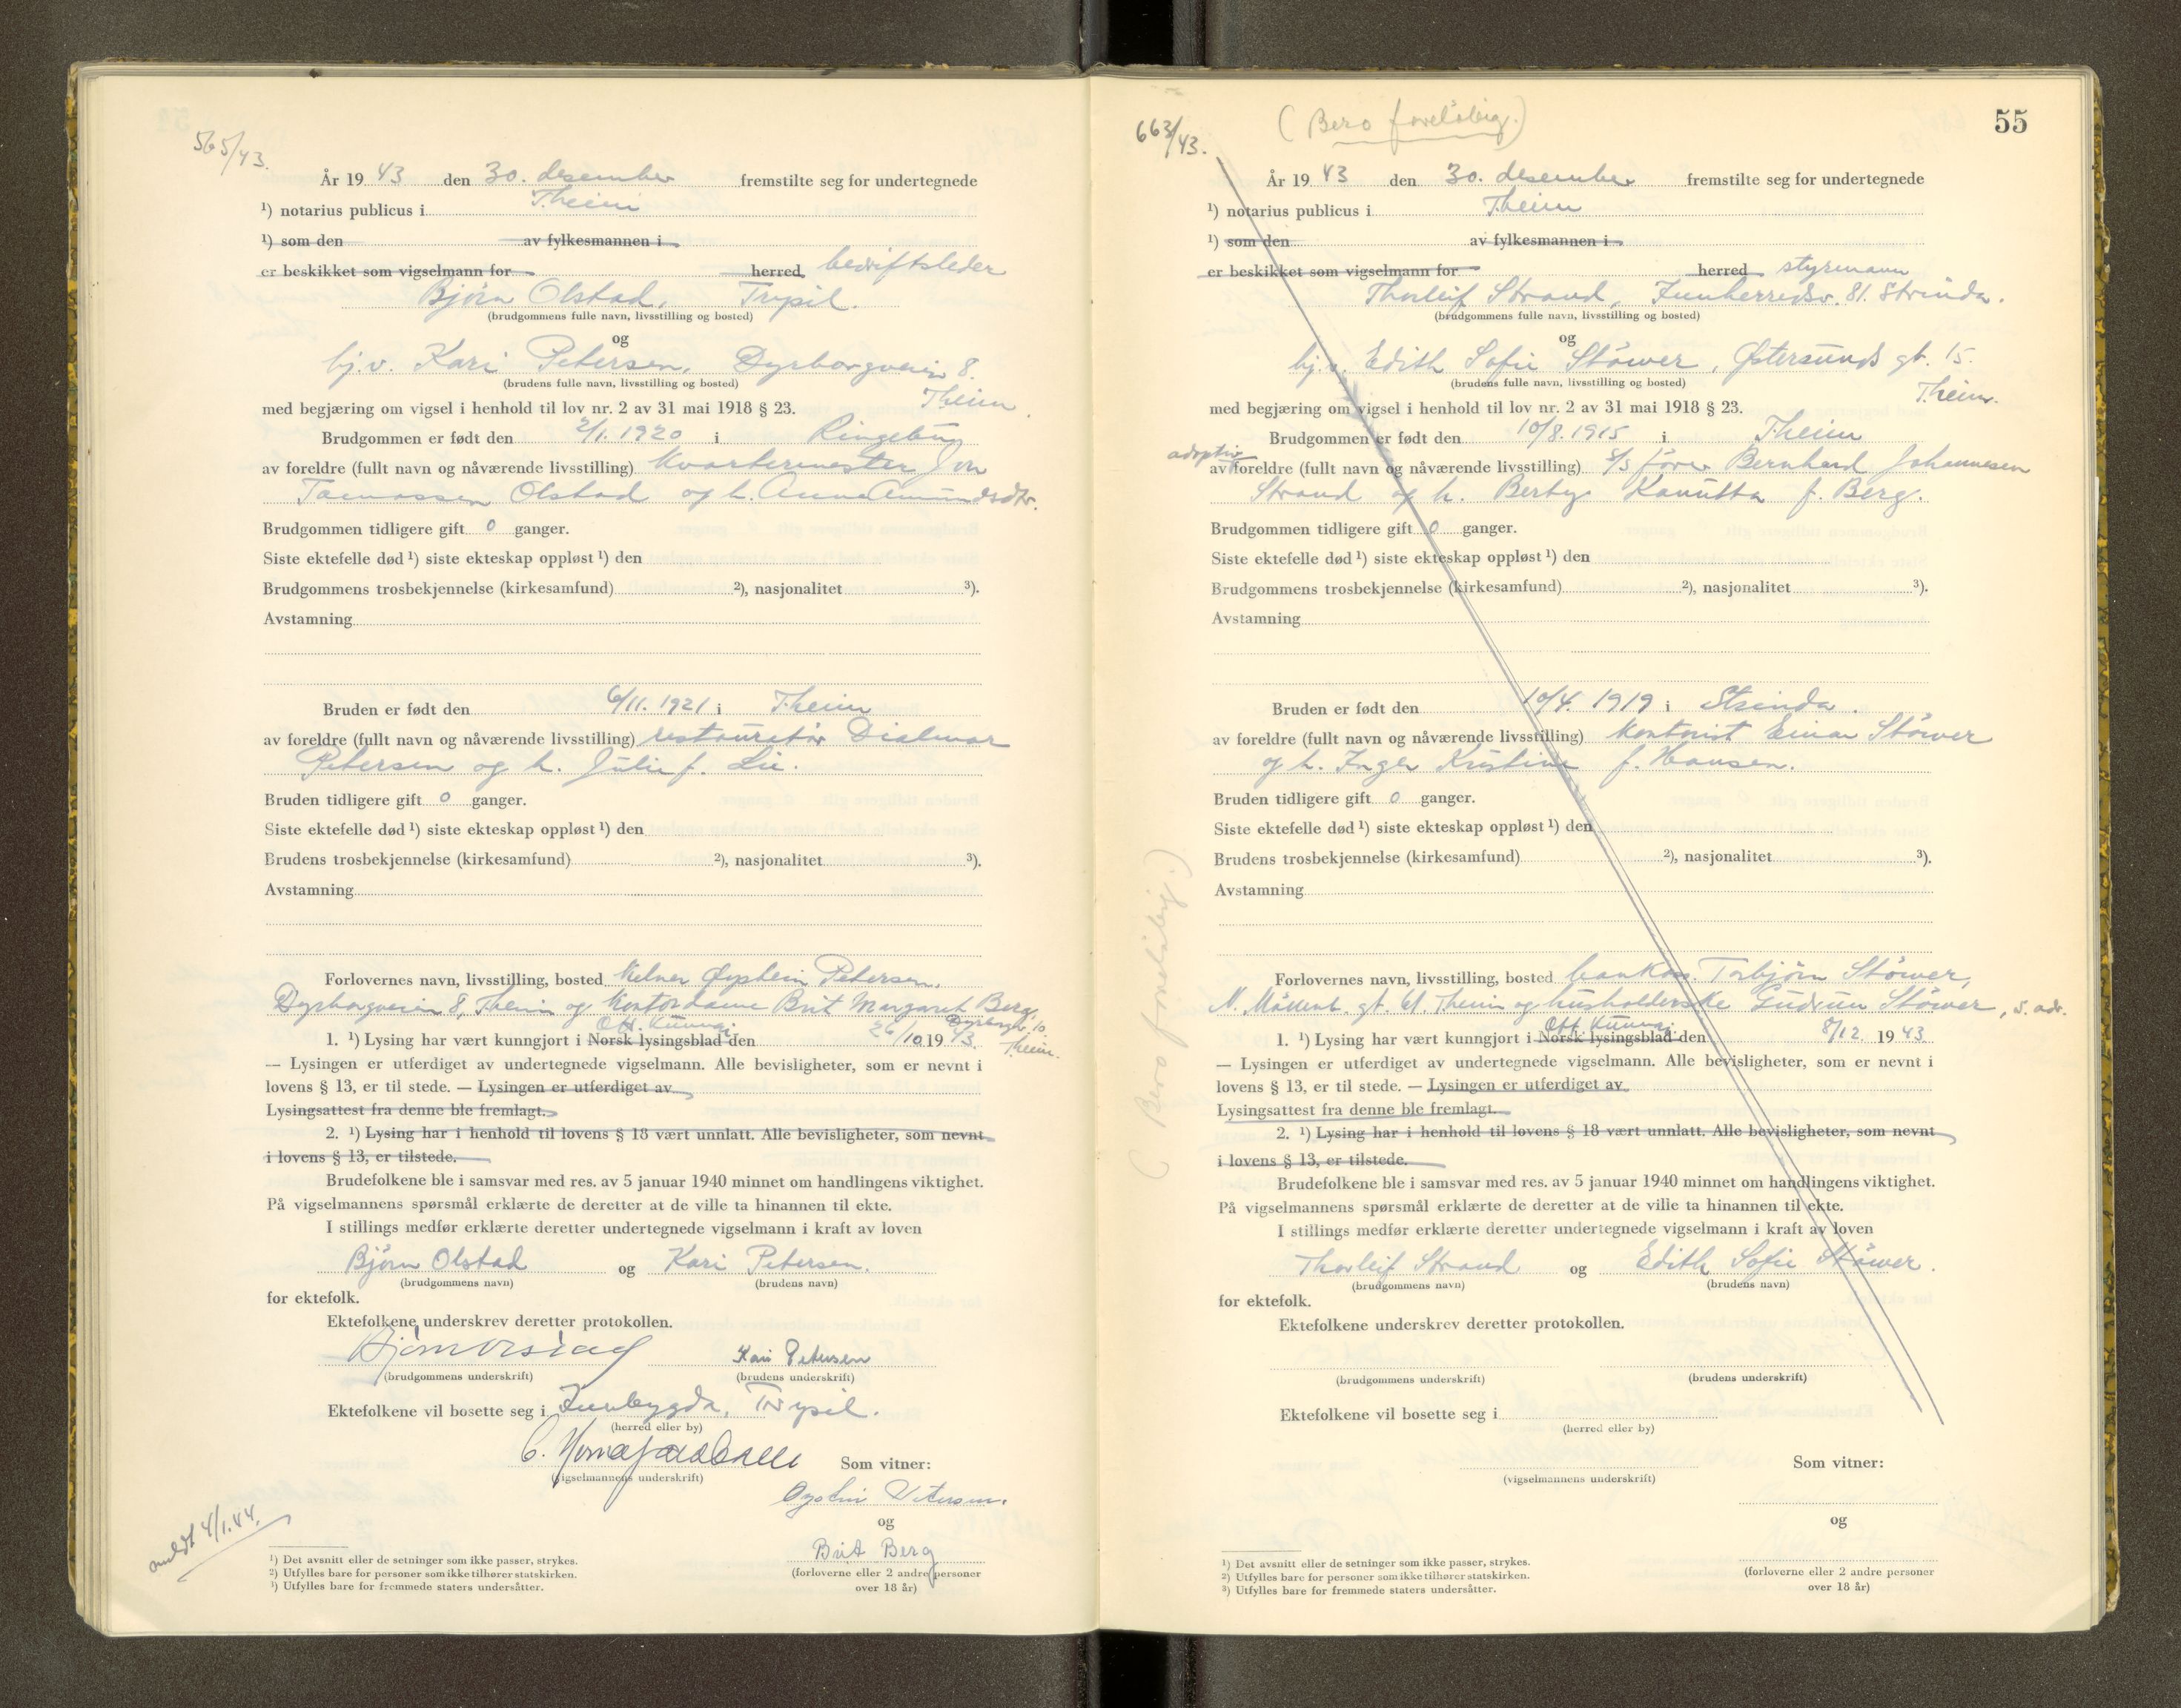 565/43.
År 19 43 den 30. desember fremstilte seg for undertegnede
¹) notarius publicus i T.heim
¹) som den av fylkesmannen i
er beskikket som vigselmann for herred bedriftsleder
Bjørn Olstad, Trysil.
(brudgommens fulle navn, livsstilling og bosted)
og
hj.v. Kari Petersen, Dyrborgveien 8.
(brudens fulle navn, livsstilling og bosted)
T.heim.
med begjæring om vigsel i henhold til lov nr. 2 av 31 mai 1918 § 23.
Brudgommen er født den 2/1. 1920 i Ringebu
av foreldre (fullt navn og nåværende livsstilling) Kvartermester Jon
Tomassen Olstad og h. Anna Amundsdtr.
Brudgommen tidligere gift 0 ganger.
Siste ektefelle død ¹) siste ekteskap oppløst ¹) den
Brudgommens trosbekjennelse (kirkesamfund) ²), nasjonalitet ³).
Avstamning
Bruden er født den 6/11. 1921 i T.heim
av foreldre (fullt navn og nåværende livsstilling) restauratør Dialmar
Petersen og h. Julie f. Lie.
Bruden tidligere gift 0 ganger.
Siste ektefelle død ¹) siste ekteskap oppløst ¹) den
Brudens trosbekjennelse (kirkesamfund) ²), nasjonalitet ³).
Avstamning
Forlovernes navn, livsstilling, bosted Kelner Øystein Petersen,
Dyrborgveien 8, T.heim og Kontordame Brit Margaret Berg,
Dyrborgv. 10
Off. Kunngj.
1. ¹) Lysing har vært kunngjort i Norsk lysingsblad den 26/10 19 43. T.heim.
— Lysingen er utferdiget av undertegnede vigselmann. Alle bevisligheter, som er nevnt i
lovens § 13, er til stede. — Lysingen er utferdiget av
Lysingsattest fra denne ble fremlagt.
2. ¹) Lysing har i henhold til lovens § 18 vært unnlatt. Alle bevisligheter, som nevnt
i lovens § 13, er tilstede.
Brudefolkene ble i samsvar med res. av 5 januar 1940 minnet om handlingens viktighet.
På vigselmannens spørsmål erklærte de deretter at de ville ta hinannen til ekte.
I stillings medfør erklærte deretter undertegnede vigselmann i kraft av loven
Bjørn Olstad og Kari Petersen.
(brudgommens navn) (brudens navn)
for ektefolk.
Ektefolkene underskrev deretter protokollen.
Bjørn Olstad Kari Petersen
(brudgommens underskrift) (brudens underskrift)
Ektefolkene vil bosette seg i Innbygda, Trysil.
(herred eller by)
Som vitner:
(vigselmannens underskrift)
Øystein Petersen.
og
Brit Berg
(forloverne eller 2 andre personer
over 18 år)
meldt 4/1.44.
¹) Det avsnitt eller de setninger som ikke passer, strykes.
²) Utfylles bare for personer som ikke tilhører statskirken.
³) Utfylles bare for fremmede staters undersåtter.
55
663/43.
(Bero foreløbig.)
År 19 43 den 30. desember fremstilte seg for undertegnede
¹) notarius publicus i T.heim
¹) som den av fylkesmannen i
er beskikket som vigselmann for herred styrmann
Thorleif Strand, Innherredsv. 81. Strinda.
(brudgommens fulle navn, livsstilling og bosted)
og
hj.v. Edith Sofie Støwer, Østersunds gt. 15.
(brudens fulle navn, livsstilling og bosted)
T.heim.
med begjæring om vigsel i henhold til lov nr. 2 av 31 mai 1918 § 23.
Brudgommen er født den 10/8. 1915 i T.heim
adoptiv
av foreldre (fullt navn og nåværende livsstilling) s/s fører Bernhard Johannesen
Strand og h. Berby Kanutta f. Berg.
Brudgommen tidligere gift 0 ganger.
Siste ektefelle død ¹) siste ekteskap oppløst ¹) den
Brudgommens trosbekjennelse (kirkesamfund) ²), nasjonalitet ³).
Avstamning
Bruden er født den 10/4. 1919 i Strinda.
av foreldre (fullt navn og nåværende livsstilling) Kontorist Einar Støwer
og h. Inger Kristine f. Hansen.
Bruden tidligere gift 0 ganger.
Siste ektefelle død ¹) siste ekteskap oppløst ¹) den
Brudens trosbekjennelse (kirkesamfund) ²), nasjonalitet ³).
Avstamning
(Bero foreløbig.)
Forlovernes navn, livsstilling, bosted bankass. Torbjørn Støwer,
N. Møllenb. gt. 61. T.heim og husholderske Gudrun Støwer, s. adr.
Off. Kunngj.
1. ¹) Lysing har vært kunngjort i Norsk lysingsblad den 8/12. 19 43
— Lysingen er utferdiget av undertegnede vigselmann. Alle bevisligheter, som er nevnt i
lovens § 13, er til stede. — Lysingen er utferdiget av
Lysingsattest fra denne ble fremlagt.
2. ¹) Lysing har i henhold til lovens § 18 vært unnlatt. Alle bevisligheter, som nevnt
i lovens § 13, er tilstede.
Brudefolkene ble i samsvar med res. av 5 januar 1940 minnet om handlingens viktighet.
På vigselmannens spørsmål erklærte de deretter at de ville ta hinannen til ekte.
I stillings medfør erklærte deretter undertegnede vigselmann i kraft av loven
Thorleif Strand og Edith Sofie Støwer.
(brudgommens navn) (brudens navn)
for ektefolk.
Ektefolkene underskrev deretter protokollen.
(brudgommens underskrift) (brudens underskrift)
Ektefolkene vil bosette seg i
(herred eller by)
Som vitner:
(vigselmannens underskrift)
og
(forloverne eller 2 andre personer
over 18 år)
¹) Det avsnitt eller de setninger som ikke passer, strykes.
²) Utfylles bare for personer som ikke tilhører statskirken.
³) Utfylles bare for fremmede staters undersåtter.